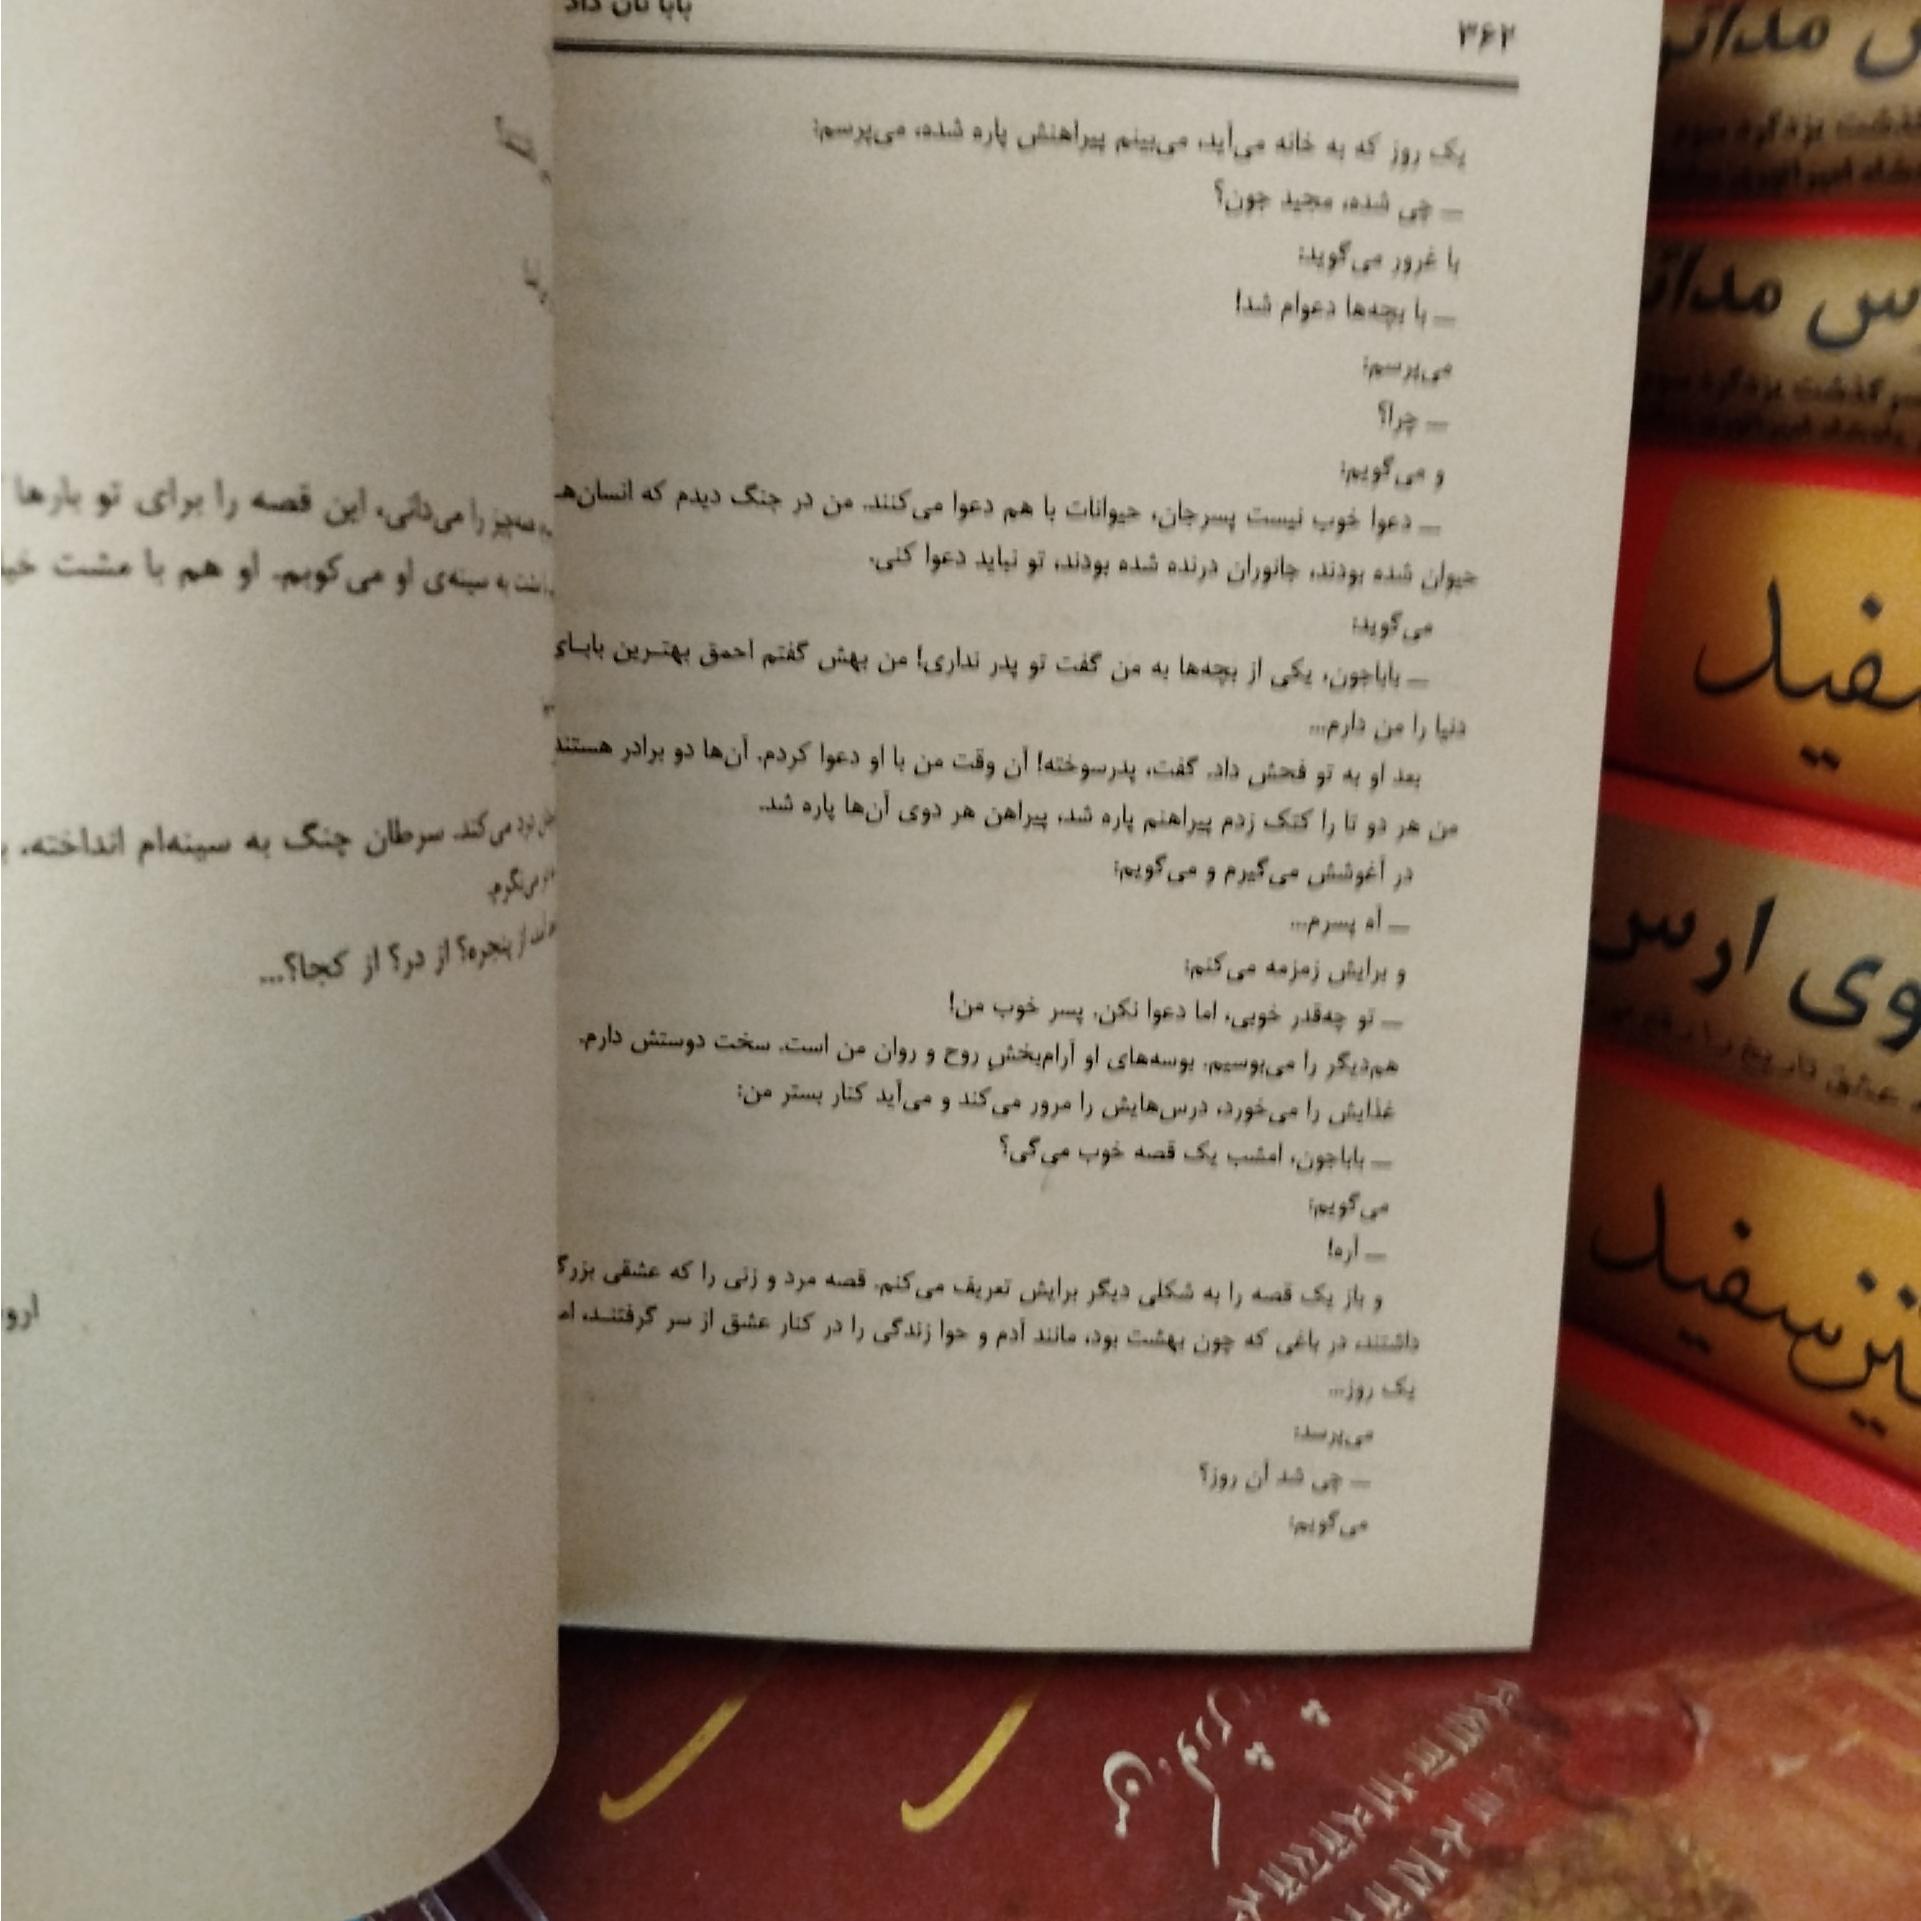 ۳۶۲
بابا نان داد
یک روز که به خانه می‌آید، می‌بینم پیراهنش پاره شده، می‌پرسم:
— چی شده، مجید جون؟
با غرور می‌گوید:
— با بچه‌ها دعوام شد!
می‌پرسم:
— چرا؟
و می‌گویم:
— دعوا خوب نیست پسرجان، حیوانات با هم دعوا می‌کنند. من در جنگ دیدم که انسان‌هـ
حیوان شده بودند، جانوران درنده شده بودند، تو نباید دعوا کنی.
می‌گوید:
— باباجون، یکی از بچه‌ها به من گفت تو پدر نداری! من بهش گفتم احمق بهتـرین بابـای
دنیا را من دارم...
بعد او به تو فحش داد. گفت، پدرسوخته! آن وقت من با او دعوا کردم. آن‌ها دو برادر هستند
من هر دو تا را کتک زدم پیراهنم پاره شد، پیراهن هر دوی آن‌ها پاره شد.
در آغوشش می‌گیرم و می‌گویم:
— آه پسرم...
و برایش زمزمه می‌کنم:
— تو چه‌قدر خوبی، اما دعوا نکن. پسر خوب من!
هم‌دیگر را می‌بوسیم. بوسه‌های او آرام‌بخش روح و روان من است. سخت دوستش دارم.
غذایش را می‌خورد، درس‌هایش را مرور می‌کند و می‌آید کنار بستر من:
— باباجون، امشب یک قصه خوب می‌گی؟
می‌گویم:
— آره!
و باز یک قصه را به شکلی دیگر برایش تعریف می‌کنم. قصه مرد و زنی را که عشقی بزرگ
داشتند، در باغی که چون بهشت بود، مانند آدم و حوا زندگی را در کنار عشق از سر گرفتنـد، اما
یک روز...
می‌پرسد:
— چی شد آن روز؟
می‌گویم:
را می‌دانی، این قصه را برای تو بارها
به سینه‌ی او می‌کوبم. او هم با مشت
می‌کند. سرطان چنگ به سینه‌ام انداخته.
می‌نگرم.
از پنجره؟ از در؟ از کجا؟...
س مدائن
سرگذشت یزدگرد سوم
سفید
وی ارس
عشق تاریخ را رقم
سفید